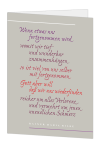 Wenn etwas uns
fortgenommen wird,
womit wir tief
und wunderbar
zusammenhängen,
so ist viel von uns selber
mit fortgenommen.
Gott aber will,
daß wir uns wiederfinden
reicher um alles Verlorene,
und vermehrt um jenen
unendlichen Schmerz